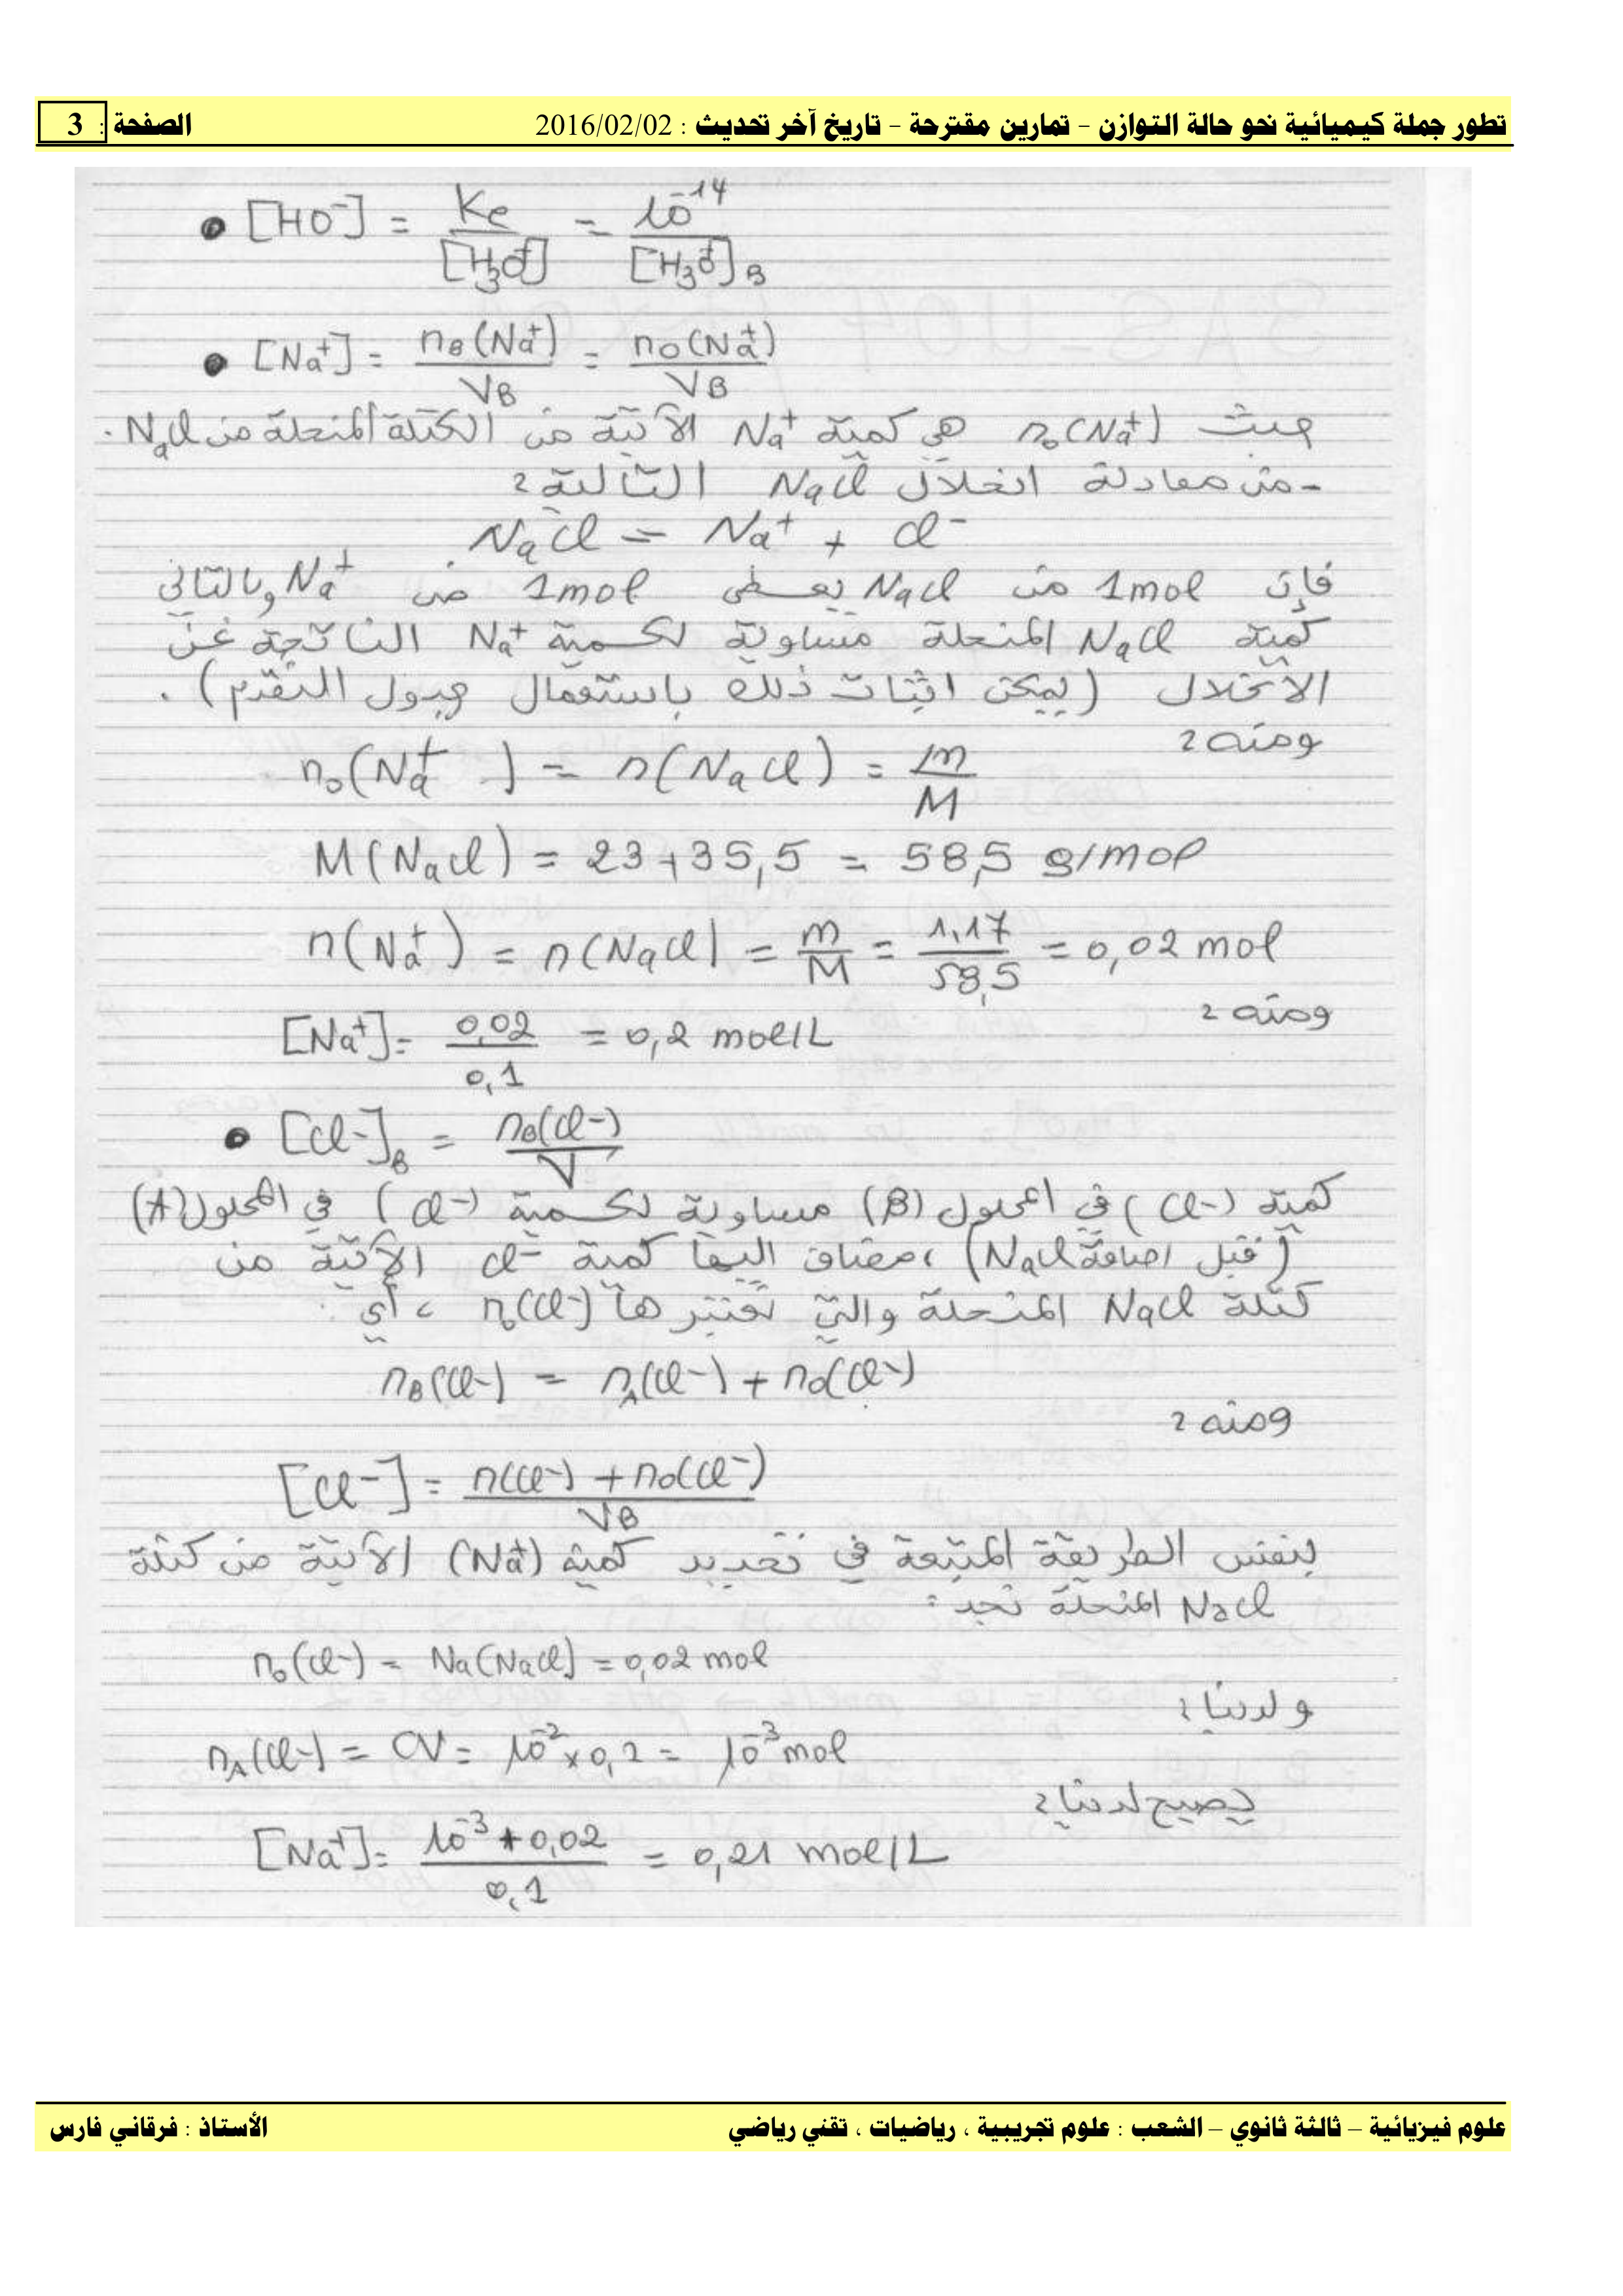 تطور جملة كيميائية نحو حالة التوازن – تمارين مقترحة – تاريخ آخر تحديث : 2016/02/02 الصفحة : 3
• [HO⁻] = Ke / [H₃O⁺] = 10⁻¹⁴ / [H₃O⁺]B
• [Na⁺] = nB(Na⁺) / VB = n₀(Na⁺) / VB
حيث n₀(Na⁺) هي كمية Na⁺ الآتية من الكتلة المنحلة من NaCl.
- من معادلة انحلال NaCl التالية :
NaCl = Na⁺ + Cl⁻
فإن 1mol من NaCl يعطي 1mol من Na⁺ وبالتالي
كمية NaCl المنحلة مساوية لكمية Na⁺ الناتجة عن
الانحلال (يمكن اثبات ذلك باستعمال جدول التقدم) .
ومنه :
n₀(Na⁺) = n(NaCl) = m / M
M(NaCl) = 23 + 35,5 = 58,5 g/mol
n(Na⁺) = n(NaCl) = m / M = 1,17 / 58,5 = 0,02 mol
ومنه :
[Na⁺] = 0,02 / 0,1 = 0,2 mol/L
• [Cl⁻]B = nB(Cl⁻) / V
كمية (Cl⁻) في المحلول (B) مساوية لكمية (Cl⁻) في المحلول (A)
(قبل اضافة NaCl) ، مضاف اليها كمية Cl⁻ الآتية من
كتلة NaCl المنحلة والتي نعتبرها n₀(Cl⁻) ، أي :
nB(Cl⁻) = nA(Cl⁻) + n₀(Cl⁻)
ومنه :
[Cl⁻] = n(Cl⁻) + n₀(Cl⁻) / VB
بنفس الطريقة المتبعة في تحديد كمية (Na⁺) الآتية من كتلة
NaCl المنحلة نجد :
n₀(Cl⁻) = Na(NaCl) = 0,02 mol
ولدينا :
nA(Cl⁻) = CV = 10⁻² × 0,1 = 10⁻³ mol
يصبح لدينا :
[Na⁺] = 10⁻³ + 0,02 / 0,1 = 0,21 mol/L
علوم فيزيائية – ثالثة ثانوي – الشعب : علوم تجريبية ، رياضيات ، تقني رياضي الأستاذ : فرقاني فارس